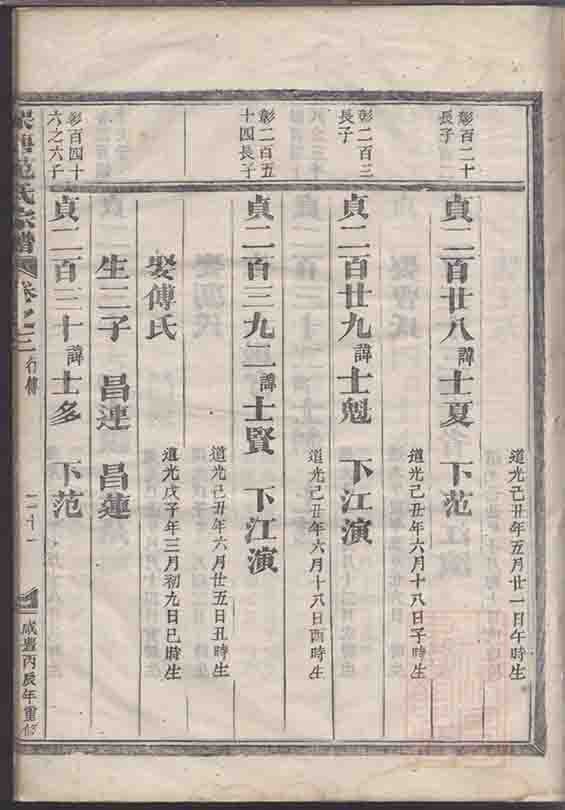 彰百二十
長子
貞二百廿八諱士夏 下范
道光己丑年五月廿一日午時生
彰二百三
長子
貞二百廿九諱士魁 下江演
道光己丑年六月十八日子時生
彰二百五
十四長子
貞二百三九二諱士賢 下江演
道光己丑年六月十八日酉時生
道光己丑年六月廿五日丑時生
娶傅氏
道光戊子年三月初九日巳時生
生二子 昌連 昌蓮
彰百四十
六之六子
貞二百三十諱士多 下范
范氏宗譜
卷之二 行傳
二十一
咸豐丙辰年重修